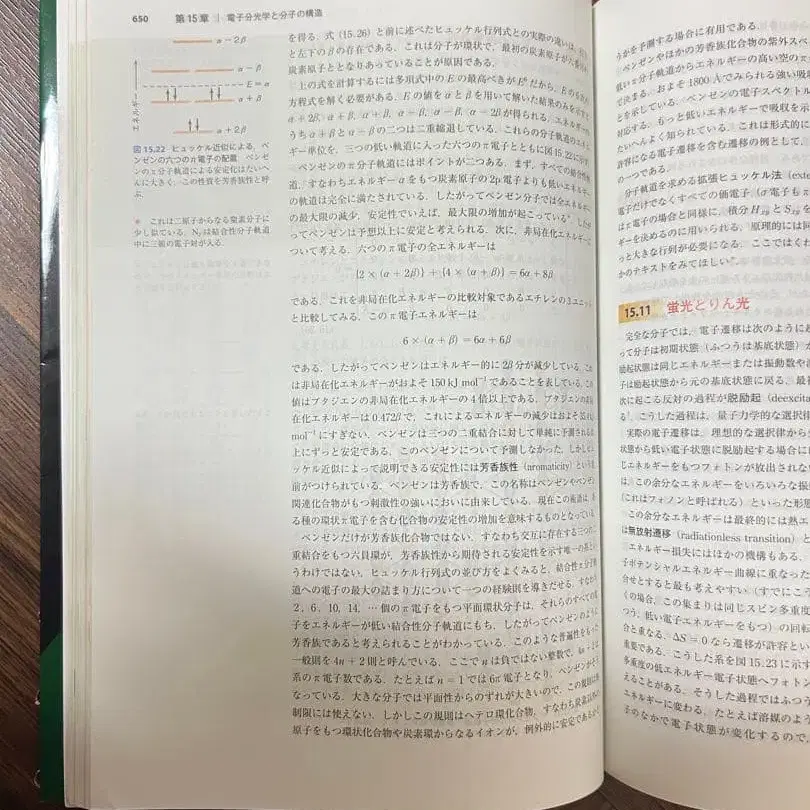 650 第15章 | 電子分光学と分子の構造
α－2β
α－β
E＝α
α＋β
α＋2β
エネルギー
図15.22 ヒュッケル近似による，ベ
ンゼンの六つのπ電子の配置 ベンゼ
ンのπ分子軌道による安定化はたいへ
んに大きく，この性質を芳香族性と呼
ぶ．
＊ これは二原子からなる窒素分子に
少し似ている．N₂は結合性分子軌道
中に三組の電子対が入る．
を得る．式（15.26）と前に述べたヒュッケル行列式との実際の違いは，
と左下のβの存在である．これは分子が環状で，最初の炭素原子が
炭素原子ととなりあっていることが原因である．
上の式を計算するには多項式中のEの最高べきがE⁶だから，Eの
方程式を解く必要がある．Eの値をαとβを用いて解いた結果のみを示す
α＋2β，α＋β，α＋β，α－β，α－β，α－2βが得られる．エネルギー
うちα＋βとα－βの二つは二重縮退している．これらの分子軌道のエネル
ギー単位を，三つの低い軌道に入った六つのπ電子とともに図15.22に示す．
ベンゼンのπ分子軌道にはポイントが二つある．まず，すべての結合性軌
道，すなわちエネルギーαをもつ炭素原子の2p電子よりも低いエネルギー
の軌道は完全に満たされている．したがってベンゼン分子では全エネルギー
の最大限の減少，安定性でいえば，最大限の増加が起こっている＊．したが
ってベンゼンは予想以上に安定と考えられる．次に，非局在化エネルギーに
ついて考える．六つのπ電子の全エネルギーは
{2 × (α + 2β)} + {4 × (α + β)} = 6α + 8β
である．これを非局在化エネルギーの比較対象であるエチレンの3ユニット
と比較してみる．このπ電子エネルギーは
6 × (α + β) = 6α + 6β
である．したがってベンゼンはエネルギー的に2β分が減少している．これ
は非局在化エネルギーがおよそ150 kJ mol⁻¹であることを表している．この
値はブタジエンの非局在化エネルギーの4倍以上である．ブタジエンの非局
在化エネルギーは0.472βで，これによるエネルギーの減少はおよそ
mol⁻¹にすぎない．ベンゼンは三つの二重結合に対して単純に予測される以
上にずっと安定である．このベンゼンについて予測しなかった，しかしヒュ
ッケル近似によって説明できる安定性には芳香族性（aromaticity）という名
前がつけられている．ベンゼンは芳香族で，この名称はベンゼンやベンゼン
関連化合物がもつ刺激性の強いにおいに由来している．現在この術語は，あ
る種の環状π電子を含む化合物の安定性の増加を意味するものとなっている．
ベンゼンだけが芳香族化合物ではない．すなわち交互に存在する三つの二
重結合をもつ六員環が，芳香族性から期待される安定性を示す唯一の系とい
うわけではない．ヒュッケル行列式の並び方をよくみると，結合性π分子軌
道への電子の最大の詰まり方について一つの経験則を導きだせる．すなわち
2，6，10，14，…個のπ電子をもつ平面環状分子は，それらのすべての電
子をエネルギーが低い結合性分子軌道にもち，したがってベンゼンのように
芳香族であると考えられることがわかっている．このような普遍性をもった
一般則を4n＋2則と呼んでいる．ここでnは負ではない整数で，4n＋2は
系のπ電子数である．たとえばn＝1では6π電子となり，ベンゼンがそう
なっている．大きな分子では平面性からのずれが大きいので，この規則は無
制限には使えない．しかしこの規則はヘテロ環化合物，すなわち炭素以外の
原子をもつ環状化合物や炭素環からなるイオンが，例外的に安定であるか
うかを予測する場合に有用である．
ベンゼンやほかの芳香族化合物の紫外スペ
低いπ分子軌道からエネルギーの高い空のπ
で決まる．およそ1800 Åでみられる強い吸
とを示している．ベンゼンの電子スペクトル
対応する，もっと低いエネルギーで吸収を示
たいへんよく知られている．これは形式的に
許容になる電子遷移を含む遷移の例として，
の一つである．
分子軌道を求める拡張ヒュッケル法（exte
電子だけでなくすべての価電子（σ電子もπ
はπ電子の場合と同様に，積分
ギーを決めるのに用いられる．原理的には同
っと大きな行列が必要になる．ここではくわ
かのテキストをみてほしい
15.11 蛍光とりん光
完全な分子では，電子遷移は次のように起
って分子は初期状態（ふつうは基底状態）か
励起状態は同じエネルギーまたは振動数や波
子は励起状態から元の基底状態に戻る．最
次に起こる反対の過程が脱励起（deexcita
る．こうした過程は，量子力学的な選択律
実際の電子遷移は，理想的な選択律から
状態から低い電子状態に脱励起する場合に
じエネルギーをもつフォトンが放出されな
は，この余分なエネルギーをいろいろな振
（これはフォノンと呼ばれる）といった形態
この余分なエネルギーは最終的には熱エ
は無放射遷移（radiationless transition）と
エネルギー損失にはほかの機構もある．
子ポテンシャルエネルギー曲線に重なった
合せとすると最も考えやすい（すでにこう
くの場合，この集まりは同じスピン多重度
つう，低い電子エネルギーをもつ）の回転
合と重なる．ΔS＝0なら遷移が許容とい
重要である．こうした系を図15.23に示す
多重度の低エネルギー電子状態へフォト
えることがある．そうした過程ではふつう
エネルギーに変わる．たとえば溶媒のよう
子のなかで電子状態が変化するので，